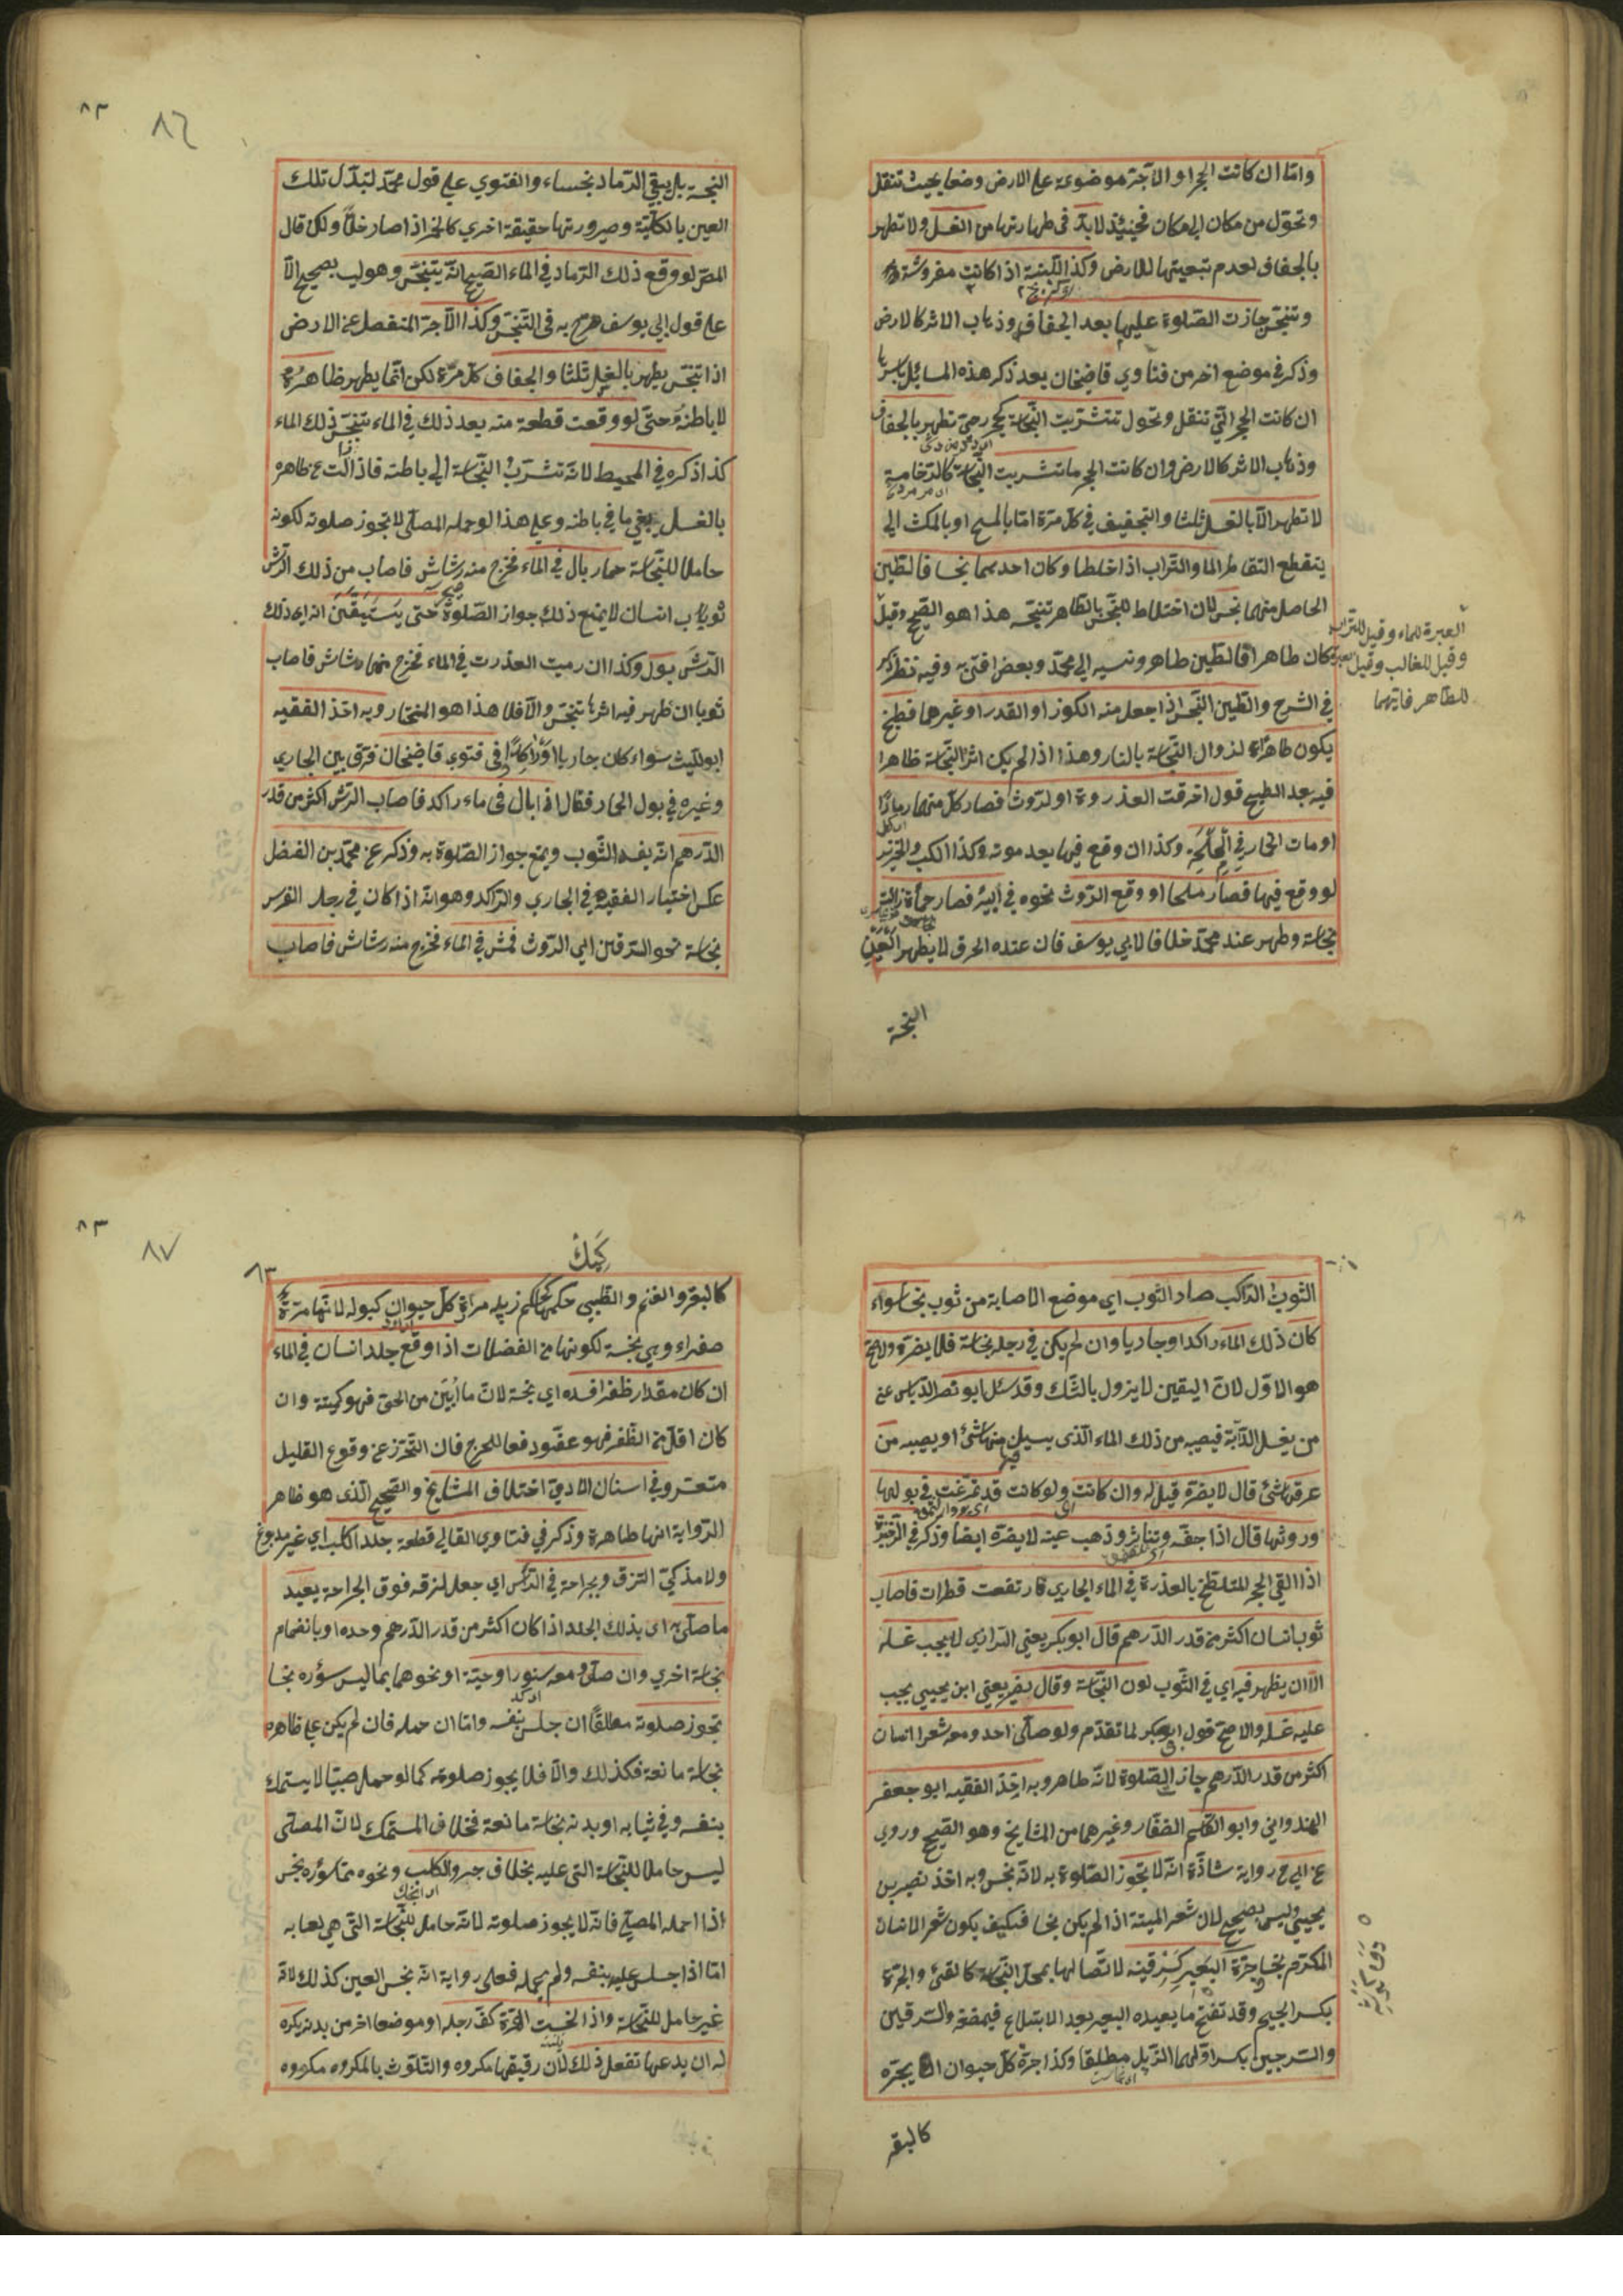 واما ان كانت الحجر او الآجرة موضوعة على الارض وضعا بحيث تنقل
وتحول من مكان الى مكان فحينئذ لا بد فى طهارتها من الغسل ولا تطهر
بالجفاف لعدم تبعيتها للارض وكذا اللبنة اذا كانت مفروشة
وتنجس جازت الصلوة عليها بعد الجفاف وذهاب الاثر كالارض
وذكر في موضع اخر من فتاوي قاضيخان بعد ذكر هذه المسائل باسرها
ان كانت الحجر التي تنقل وتحول تتشربت النجاسة كحجر رحى تطهر بالجفاف
وذهاب الاثر كالارض وان كانت الحجر ما تشربت النجاسة كالرخامية
لا تطهر الا بالغسل ثلثا والتجفيف في كل مرة اما بالمسح او بالمكث الي
ينقطع التقاطر الما والتراب اذا خلطا وكان احدهما نجسا فالطين
الحاصل منهما نجس لان اختلاط النجس بالطاهر تنجسه هذا هو الصحيح وقيل
العبرة للماء وقيل للتراب
وقيل للغالب وقيل
للطاهر فايهما
كان طاهرا فالطين طاهر ونسبه الي محمد وبعض افتى به وفيه نظر ذكر
في الشرح والطين النجس اذا جعل منه الكوز او القدر او غيرها فطبخ
يكون طاهرا لزوال النجاسة بالنار وهذا اذا لم يكن اثر النجاسة ظاهرا
فيه بعد الطبخ قول احرقت العذروة او الروث فصار كل منهما رمادا
او مات الحمار في المملحة وكذا ان وقع فيها بعد موته وكذا الكلب والخنزير
لو وقع فيها فصار ملحا او وقع الروث نحوه في البئر فصار حمأة زالت
نجاسة وطهر عند محمد خلافا لابي يوسف فان عنده الحرق لا يطهر العين
النجسة
٨٣
٨٦
النجسة بل يبقي الرماد نجسا والفتوي علي قول محمد لتبدل تلك
العين بالكلية وصيرورتها حقيقة اخري كالخمر اذا صار خلا ولكن قال
المص لو وقع ذلك الرماد في الماء الصحيح انه يتنجس وهو ليس بصحيح الا
على قول ابي يوسف صرح به فى التنجس وكذا الآجر المنفصل عن الارض
اذا تنجس يطهر بالغسل ثلثا والجفاف كل مرة لكن انما يطهر ظاهره
لا باطنه حتى لو وقعت قطعة منه بعد ذلك في الماء يتنجس ذلك الماء
كذا ذكره في المحيط لانه تشرب النجاسة الي باطنه فاذا زالت عن ظاهره
بالغسل يبقي ما في باطنه وعلي هذا لو حمله المصلى لا تجوز صلوته لكونه
حاملا للنجاسة حمار بال في الماء فخرج منه رشاش فاصاب من ذلك الرش
ثوب انسان لا يمنع ذلك جواز الصلوة حتى يستيقن انه اي ذلك
الرش بول وكذا ان رميت العذرت في الماء فخرج منها رشاش فاصاب
ثوبا ان ظهر فيه اثرها تنجس والا فلا هذا هو المختار وبه اخذ الفقيه
ابو الليث سواء كان جاريا او راكدا وفى فتوي قاضيخان فرق بين الجاري
وغيره في بول الحمار فقال اذا بال فى ماء راكد فاصاب الرش اكثر من قدر
الدرهم انه يفسد الثوب ويمنع جواز الصلوة به وذكر عن محمد بن الفضل
عكس اختيار الفقيه في الجاري والراكد وهو انه اذا كان في رجل الفرس
نجاسة نحو السرقين اى الروث فمش في الماء فخرج منه رشاش فاصاب
الثوب الراكب صار الثوب اي موضع الاصابة من ثوب نجسا سواء
كان ذلك الماء راكدا وجاريا وان لم يكن في رجله نجاسة فلا يضره والاصح
هو الاول لان اليقين لا يزول بالشك وقد سئل ابو نصر الدباس عن
من يغسل الدابة فيصيبه من ذلك الماء الذى يسيل منها شئ او يصيبه من
عرقها شئ قال لا يضره قيل له وان كانت ولو كانت قد تمرغت في بولها
وروثها قال اذا جف وتناثر وذهب عينه لا يضره ايضا وذكر في الذخيرة
اذا القي الحجر المتلطخ بالعذرة في الماء الجاري فارتفعت قطرات فاصاب
ثوب انسان اكثر من قدر الدرهم قال ابو بكر يعني الرازي لا يجب غسله
الا ان يظهر فيه اي في الثوب لون النجاسة وقال نصير يعني ابن يحيي يجب
عليه غسله والاصح قول ابو بكر لما تقدم ولو صلى احد ومعه شعر انسان
اكثر من قدر الدرهم جاز الصلوة لانه طاهر وبه اخذ الفقيه ابو جعفر
الهندواني وابو القسم الصفار وغيرهما من المشايخ وهو الصحيح وروي
عن ابي ح رواية شاذة انه لا تجوز الصلوة به لانه نجس وبه اخذ نصير بن
يحيي وليس بصحيح لان شعر الميتة اذا لم يكن نجسا فكيف يكون شعر الانسان
المكرم نجسا جرة البعير كسرقينه لاتصالها بمحل النجاسة كالقئ والجرة
بكسر الجيم وقد تفتح ما يعيده البعير بعد الابتلاع فيمضغه والسرقين
والسرجين بكسر اولهما الزبل مطلقا وكذا جرة كل حيوان يجتره
كالبقر
٨٣
٨٧
كالبقر والغنم والظبي حكمها كحكم زبله مرارة كل حيوان كبوله لانها مرة
صفراء وهي نجسة لكونها من الفضلات اذا وقع جلد انسان في الماء
ان كان مقدار ظفر افسده اي نجسه لان ما ابين من الحى فهو كميتة وان
كان اقل من الظفر فهو عفو دفعا للحرج فان التحرز عن وقوع القليل
متعسر وفي اسنان الادمي اختلاف المشايخ والصحيح الذى هو ظاهر
الرواية انها طاهرة وذكر في فتاوي القالي قطعة جلد الكلب اي غير مدبوغ
ولا مذكي التزق وبجراحة في الرأس اي جعل لزقه فوق الجراحة يعيد
ما صلى به اى بذلك الجلد اذا كان اكثر من قدر الدرهم وحده او بانضمام
نجاسة اخري وان صلى ومعه سنور او حية او نحوهما بما ليس سؤره نجسا
تجوز صلوته مطلقا ان جلس بنفسه واما ان حمله فان لم يكن على ظاهره
نجاسة مانعة فكذلك والا فلا يجوز صلوته كما لو حمل صبيا لا يستمسك
بنفسه وفي ثيابه او بدنه نجاسة مانعة فخلاف المستمسك لان المصلى
ليس حاملا للنجاسة التى عليه بخلاف جرو الكلب ونحوه مما سؤره نجس
اذا احمله المصلي فانه لا يجوز صلوته لانه حامل للنجاسة التى هي لعابه
اما اذا جلس عليه بنفسه ولم يحمله فعلى رواية انه نجس العين كذلك لانه
غير حامل للنجاسة واذا لحست الهرة كف رجله او موضعا اخر من بدنه يكره
له ان يدعها تفعل ذلك لان ريقها مكروه والتلوث بالمكروه مكروه